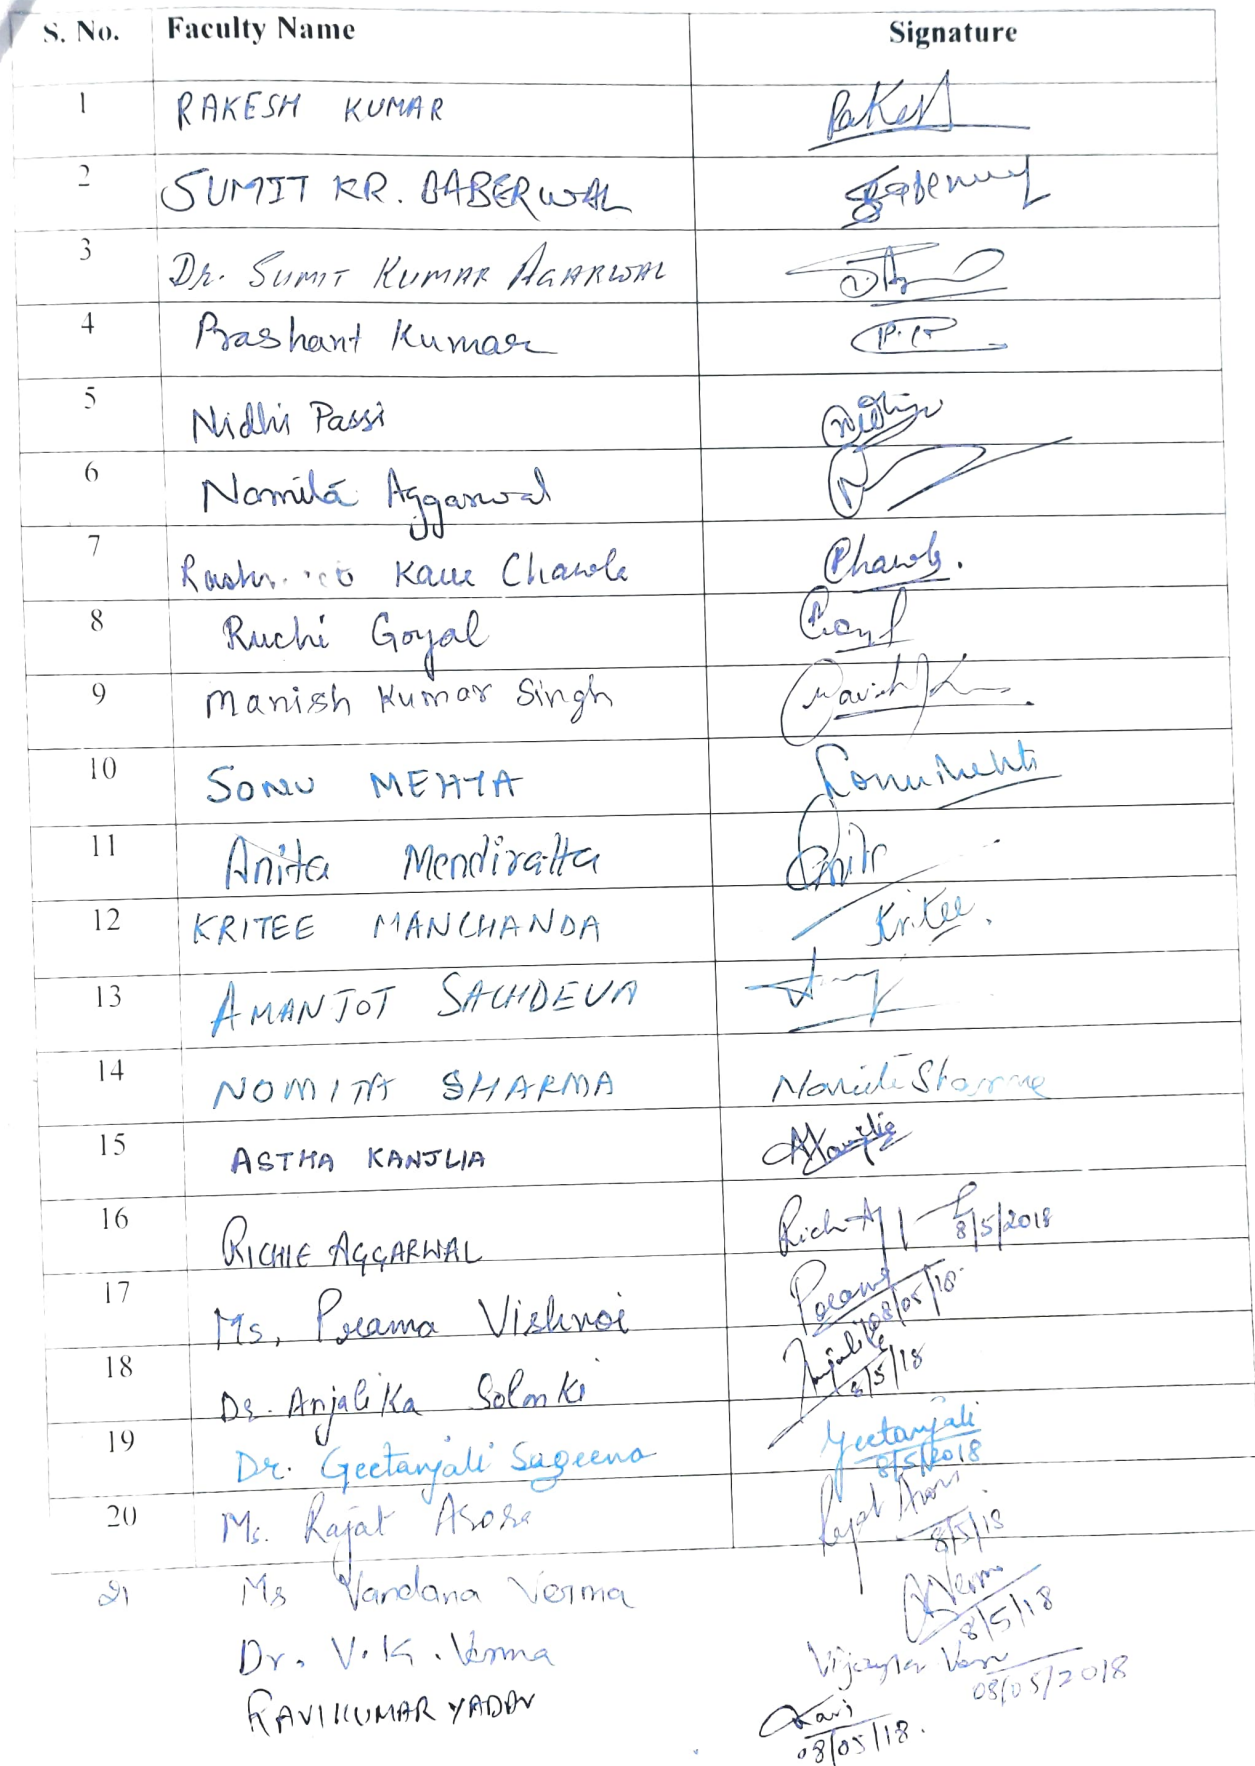 S. No. Faculty Name Signature
1 RAKESH KUMAR Rakesh
2 SUMIT KR. BABERWAL Baberwal
3 Dr. SUMIT KUMAR AGARWAL
4 Prashant Kumar
5 Nidhi Passi Nidhi
6 Namita Aggarwal
7 Kaur Chawla Chawla.
8 Ruchi Goyal
9 Manish Kumar Singh Manish K
10 SONU MEHTA Sonu Mehta
11 Anita Mendiratta Anita
12 KRITEE MANCHANDA Kritee.
13 AMANJOT SACHDEVA
14 NOMITA SHARMA Nomita Sharma
15 ASTHA KANJLIA AKanjlia
16 RICHIE AGGARWAL 8/5/2018
17 Ms, Prerna Vishnoi 08/05/18
18 Dr. Anjalika Solanki Anjalika 8/5/18
19 Dr. Geetanjali Sageena Geetanjali 8/5/2018
20 Ms. Rajat Arora Rajat Arora 8/5/18
21 Ms Vandana Verma Verma 8/5/18
Dr. V.K. Verma 08/05/2018
RAVI KUMAR YADAV Ravi 08/05/18.